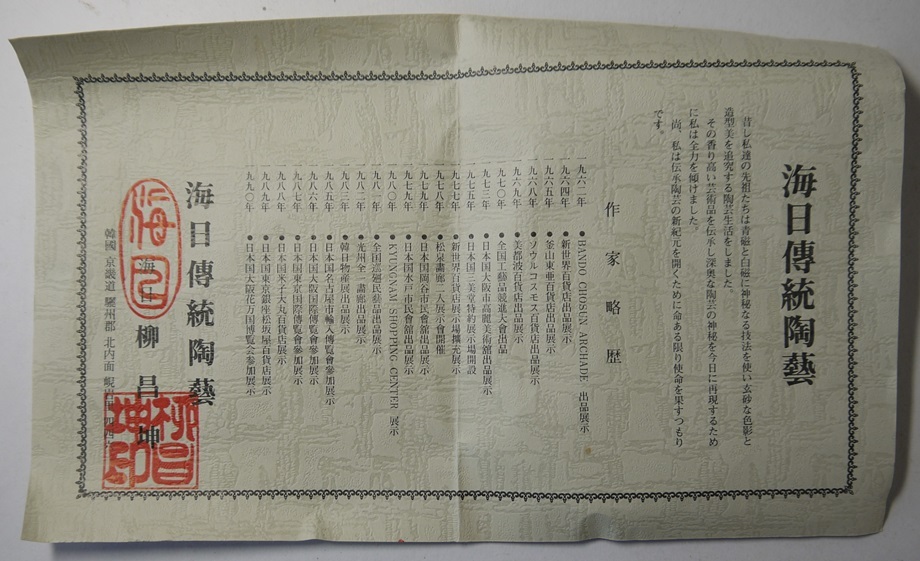 海日傳統陶藝
昔し私達の先祖たちは青磁と白磁に神秘なる技法を使い玄妙な色影と
造型美を追究する陶芸生活をしました。
その香り高い芸術品を伝承し深奥な陶芸の神秘を今日に再現するため
に私は全力を傾けました。
尚、私は伝承陶芸の新紀元を開くために命ある限り使命を果すつもり
です。
作家略歴
一九六二年 ● BANDO CHOSUN ARCHADE 出品展示
一九六四年 ● 新世界百貨店出品展示
一九六五年 ● 釜山東亜百貨店出品展示
一九六八年 ● ソウルコスモス百貨店出品展示
一九六九年 ● 美都波百貨店出品展示
一九七〇年 ● 全国工藝品競進大會出品
一九七三年 ● 日本国大阪市高麗美術舘出品展示
一九七五年 ● 日本国三美堂特約展示場開設
一九七七年 ● 新世界百貨店展示場擴充展示
一九七八年 ● 松泉畵廊二人展示會開催
一九七九年 ● 日本国 谷市民會舘出品展示
一九八〇年 ● 日本国水戸市民會舘出品展示
● KYUNGNAM SHOPPING CENTER 展示
一九八一年 ● 全国巡廻民藝品出品展示
一九八二年 ● 光州全一畵廊出品展示
一九八三年 ● 韓日物産展出品展示
一九八五年 ● 日本国名古屋市輸入博覧會參加展示
一九八六年 ● 日本国大阪国際博覧會參加展示
一九八七年 ● 日本国東京国際博覧會參加展示
一九八八年 ● 日本国米子大丸百貨店展示
一九八九年 ● 日本国東京銀座松坂屋百貨店展示
一九九〇年 ● 日本国大阪花万国博覧会參加展示
海日傳統陶藝
海日 柳昌坤
韓國 京畿道 驪州郡 北内面
海日
柳昌坤印